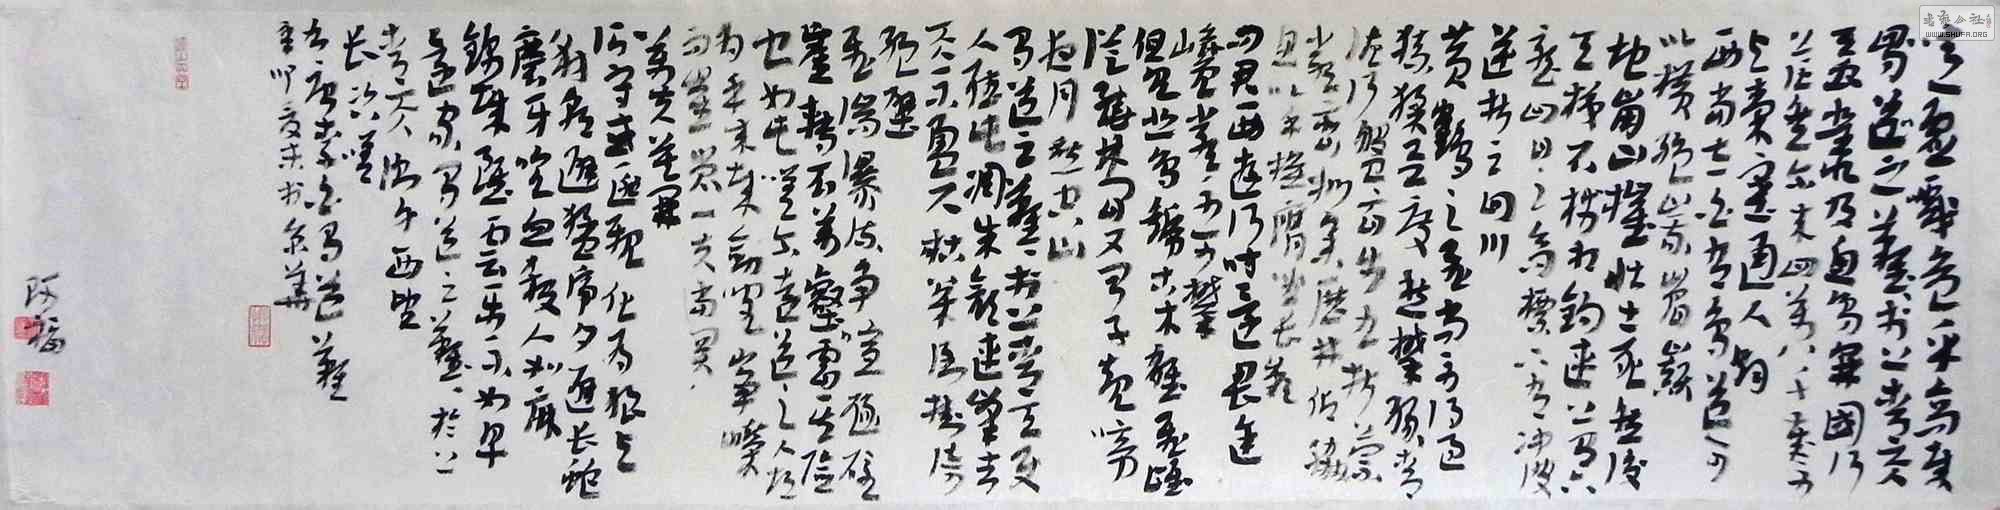 噫吁戏危乎高哉
蜀道之难难于上青天
蚕丛及鱼凫开国何
茫然尔来四万八千岁不
与秦塞通人烟
西当太白有鸟道可
以横绝峨嵋巅
地崩山摧壮士死然后
天梯石栈相钩连上有六
龙回日之高标下有冲波
逆折之回川
黄鹤之飞尚不得过
猿猱欲度愁攀缘青
泥何盘盘百步九折萦
岩峦扪参历井仰胁
息以手抚膺坐长叹
问君西游何时还畏途
巉岩不可攀
但见悲鸟号古木雄飞雌
从绕林间又闻子规啼
夜月愁空山
蜀道之难难于上青天使
人听此凋朱颜连峰去
天不盈尺枯松倒挂倚
绝壁
飞湍瀑流争喧豗砯
崖转石万壑雷其险
也如此嗟尔远道之人胡
为乎来哉剑阁峥嵘
而崔嵬一夫当关
万夫莫开
所守或匪亲化为狼与
豺朝避猛虎夕避长蛇
磨牙吮血杀人如麻
锦城虽云乐不如早
还家蜀道之难难于上
青天侧身西望
长咨嗟
右唐李白蜀道难
阿福
书艺公社
WWW.SHUFA.ORG